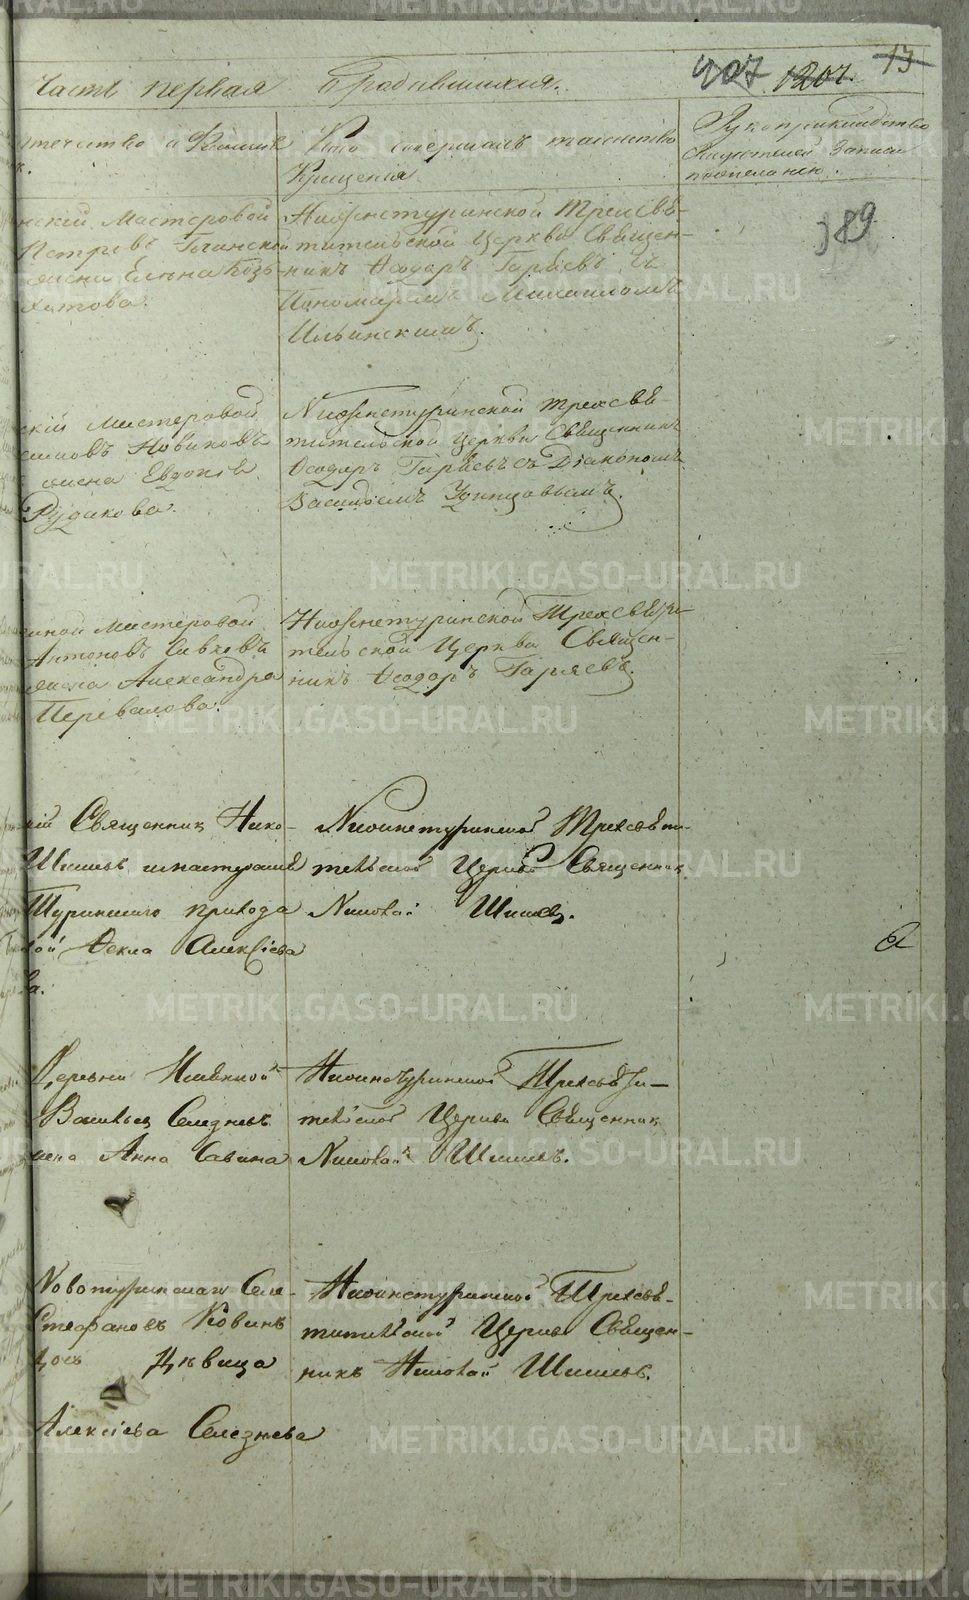 Часть первая О родившихся.
907 1207. 13
отечество и Фамилія
Кто совершалъ таинство
Крещенія
Рукоприкладство
свидѣтелей записи
по желанію.
389
нскій Мастеровой
Петровъ
жена Елена Козь-
Нижнетуринской Трехсвя-
тительской Церкви Священ-
никъ Ѳеодоръ Гаряевъ съ
Пономаремъ Михаиломъ
Ильинскимъ.
скій Мастеровой
Новиковъ
жена Евдокія
Рудакова.
Нижнетуринской Трехсвя-
тительской Церкви Священникъ
Ѳеодоръ Гаряевъ съ Діакономъ
Василіемъ Удинцовымъ.
Мастеровой
Антоновъ
жена Александра
Перевалова.
Нижнетуринской Трехсвяти-
тельской Церкви Священ-
никъ Ѳеодоръ Гаряевъ.
кій Священник Нико-
Шишевъ
Туринскаго прихода
Ѳекла Алексіева
ва.
Нижнетуринской Трехсвяти-
тельской Церкви Священник
Николай Шишев.
Деревни Имянной
Василь Селезневъ
жена Анна Савина
Нижнетуринской Трехсвяти-
тельской Церкви Священник
Николай Шишевъ.
Новотуринскаго Селе-
Стефановъ Ковинъ
дочь Дѣвица
Алексіева Селезнева
Нижнетуринской Трехсвя-
тительской Церкви Священ-
никъ Николай Шишевъ.
METRIKI.GASO-URAL.RU